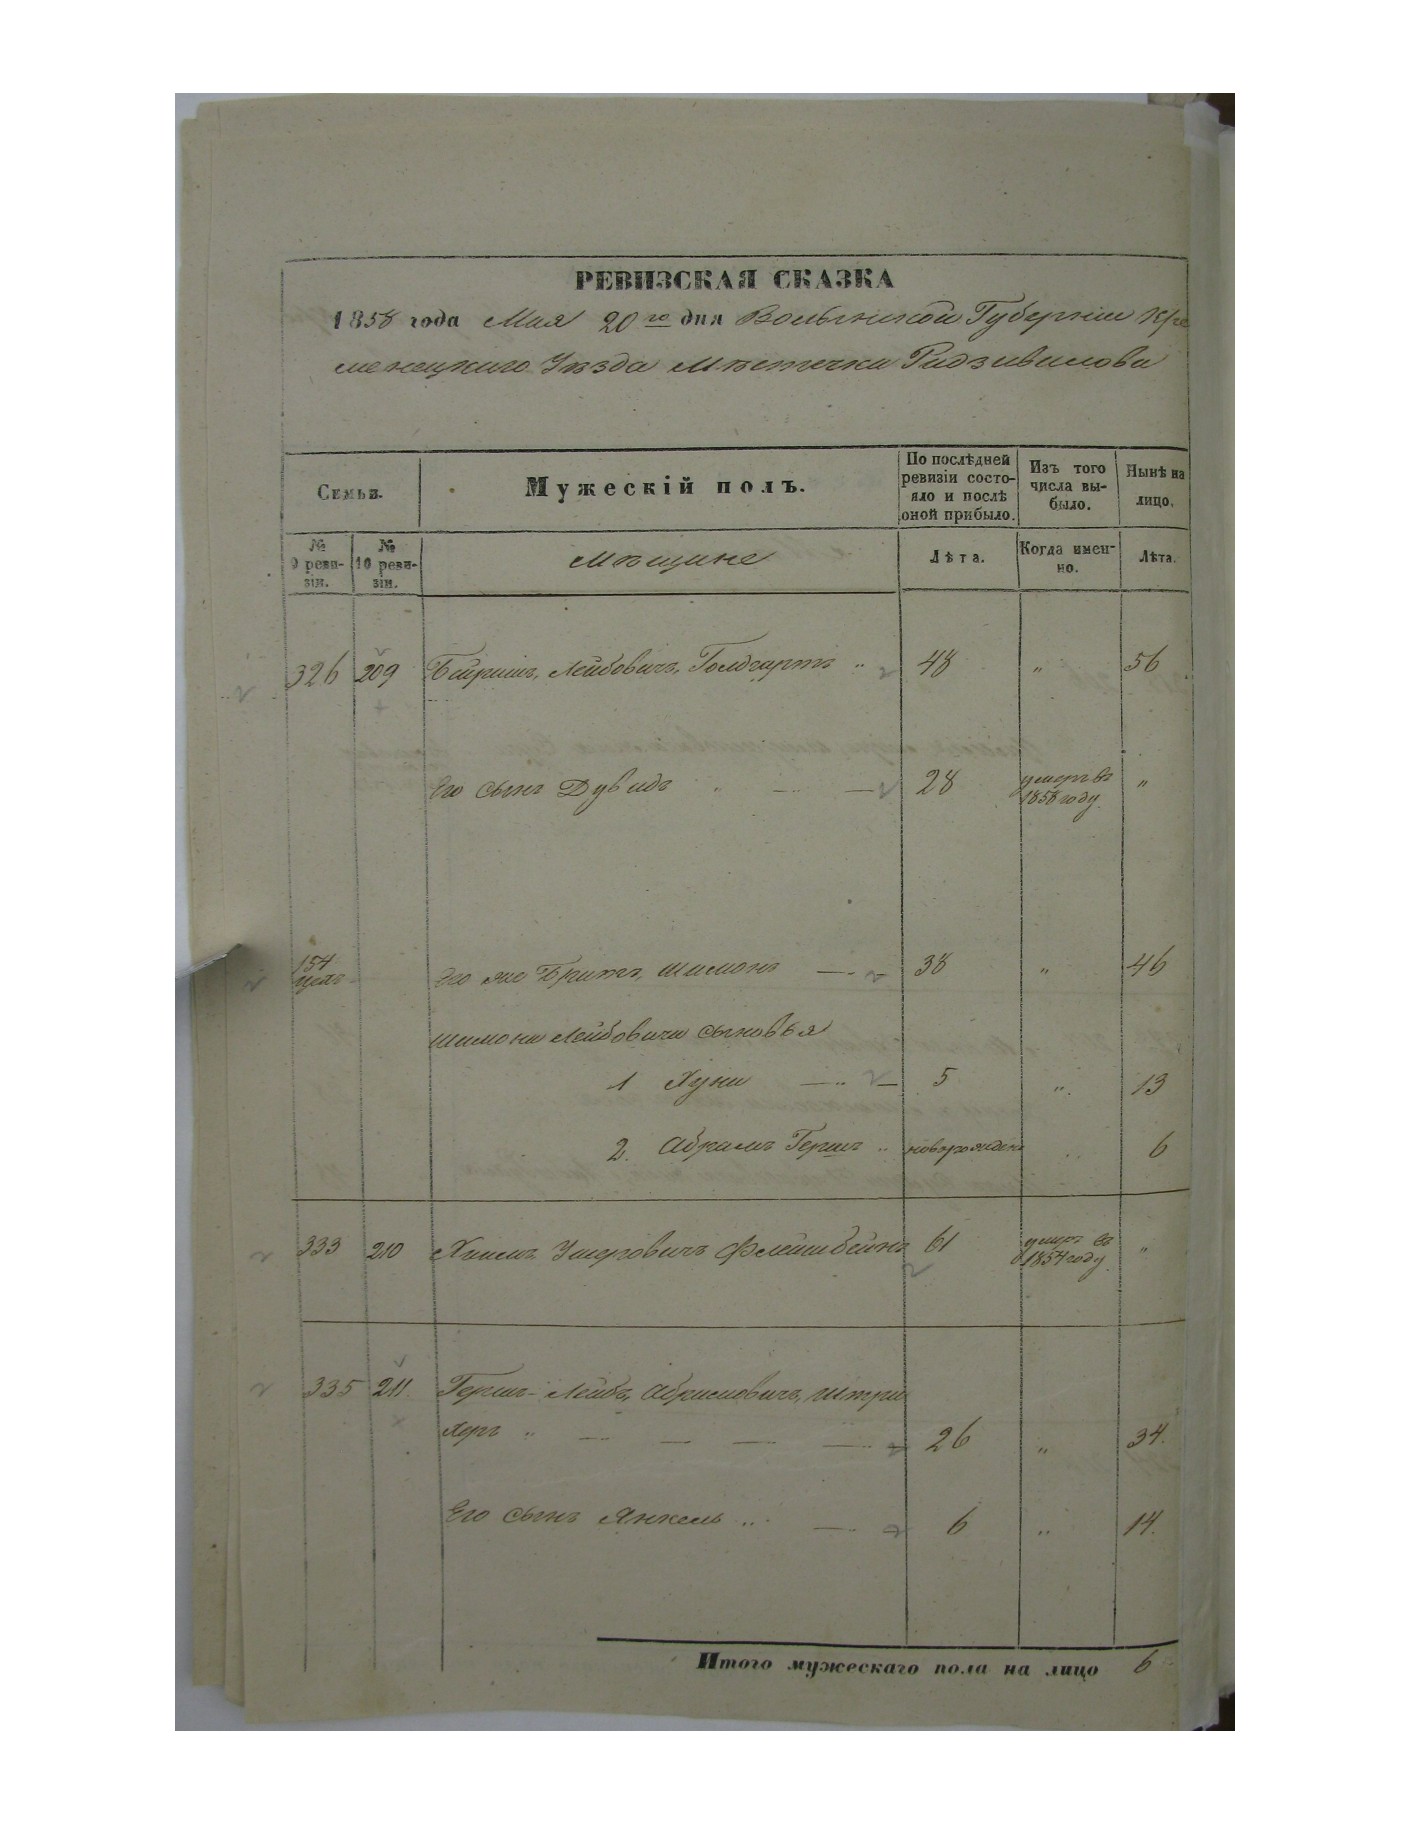 РЕВИЗСКАЯ СКАЗКА
1858 года Мая 20го дня Волынской Губерніи Кре
менецкаго Уѣзда Мѣстечка Радзивилова
Семьи.
Мужескій полъ.
По послѣдней ревизіи состо-
яло и послѣ оной прибыло.
Изъ того числа вы-
было.
Нынѣ на лицо.
№ 9 реви-
зіи.
№ 10 реви-
зіи.
Мѣщане
Лѣта.
Когда имен-
но.
Лѣта.
326 209 Бейришъ, Лейбовичъ, Голдгартъ „ 48 „ 56
Его сынъ Дувидъ 28 умеръ въ 1858 году „
154
Его же Братъ, Шимонъ 38 „ 46
Шимона Лейбовича сыновья
1 Хуна 5 „ 13
2. Абрамъ Гершъ „ новорожден 6
333 210 Хаимъ Умеровичъ Флейшбейнъ 61 умеръ въ 1854 году „
335 211. Гершъ-Лейбъ, Абрамовичъ, Штри
херъ „ 26 „ 34.
Его сынъ Янкель „ 6 „ 14.
Итого мужескаго пола на лицо 6